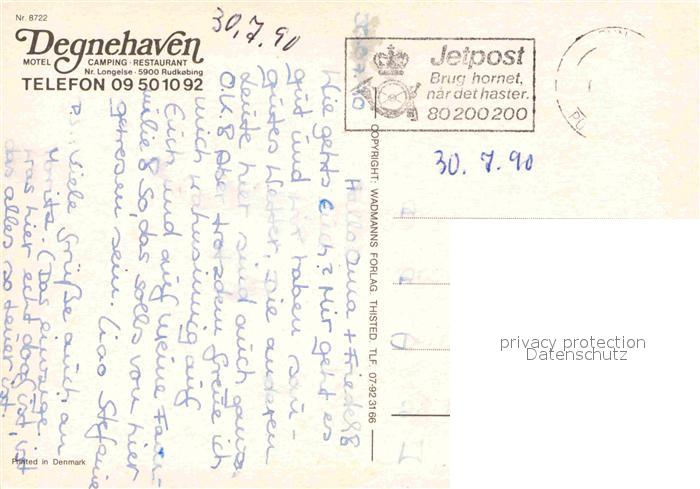 Nr. 8722
Degnehaven
MOTEL CAMPING · RESTAURANT
Nr. Longelse · 5900 Rudkøbing
TELEFON 09 50 10 92
30.7.90
Jetpost
Brug hornet,
når det haster.
80 200 200
30.7.90
Hallo Oma + Friedel&
Wie gehts Euch? Mir geht es
gut und wir haben sau-
gutes Wetter. Die anderen
Leute hier sind auch ganz
O.K. & Aber trotzdem freue ich
mich wahnsinnig auf
Euch und auf meine Fami-
lie & So, das solls von hier
gewesen sein. Ciao Stefanie
P.S. Viele Grüße auch an
Moritz. (Das einzige
was hier echt doof ist, ist
das alles so teuer ist.
COPYRIGHT: WADMANNS FORLAG. THISTED. TLF. 07-92 31 66
Printed in Denmark
privacy protection
Datenschutz